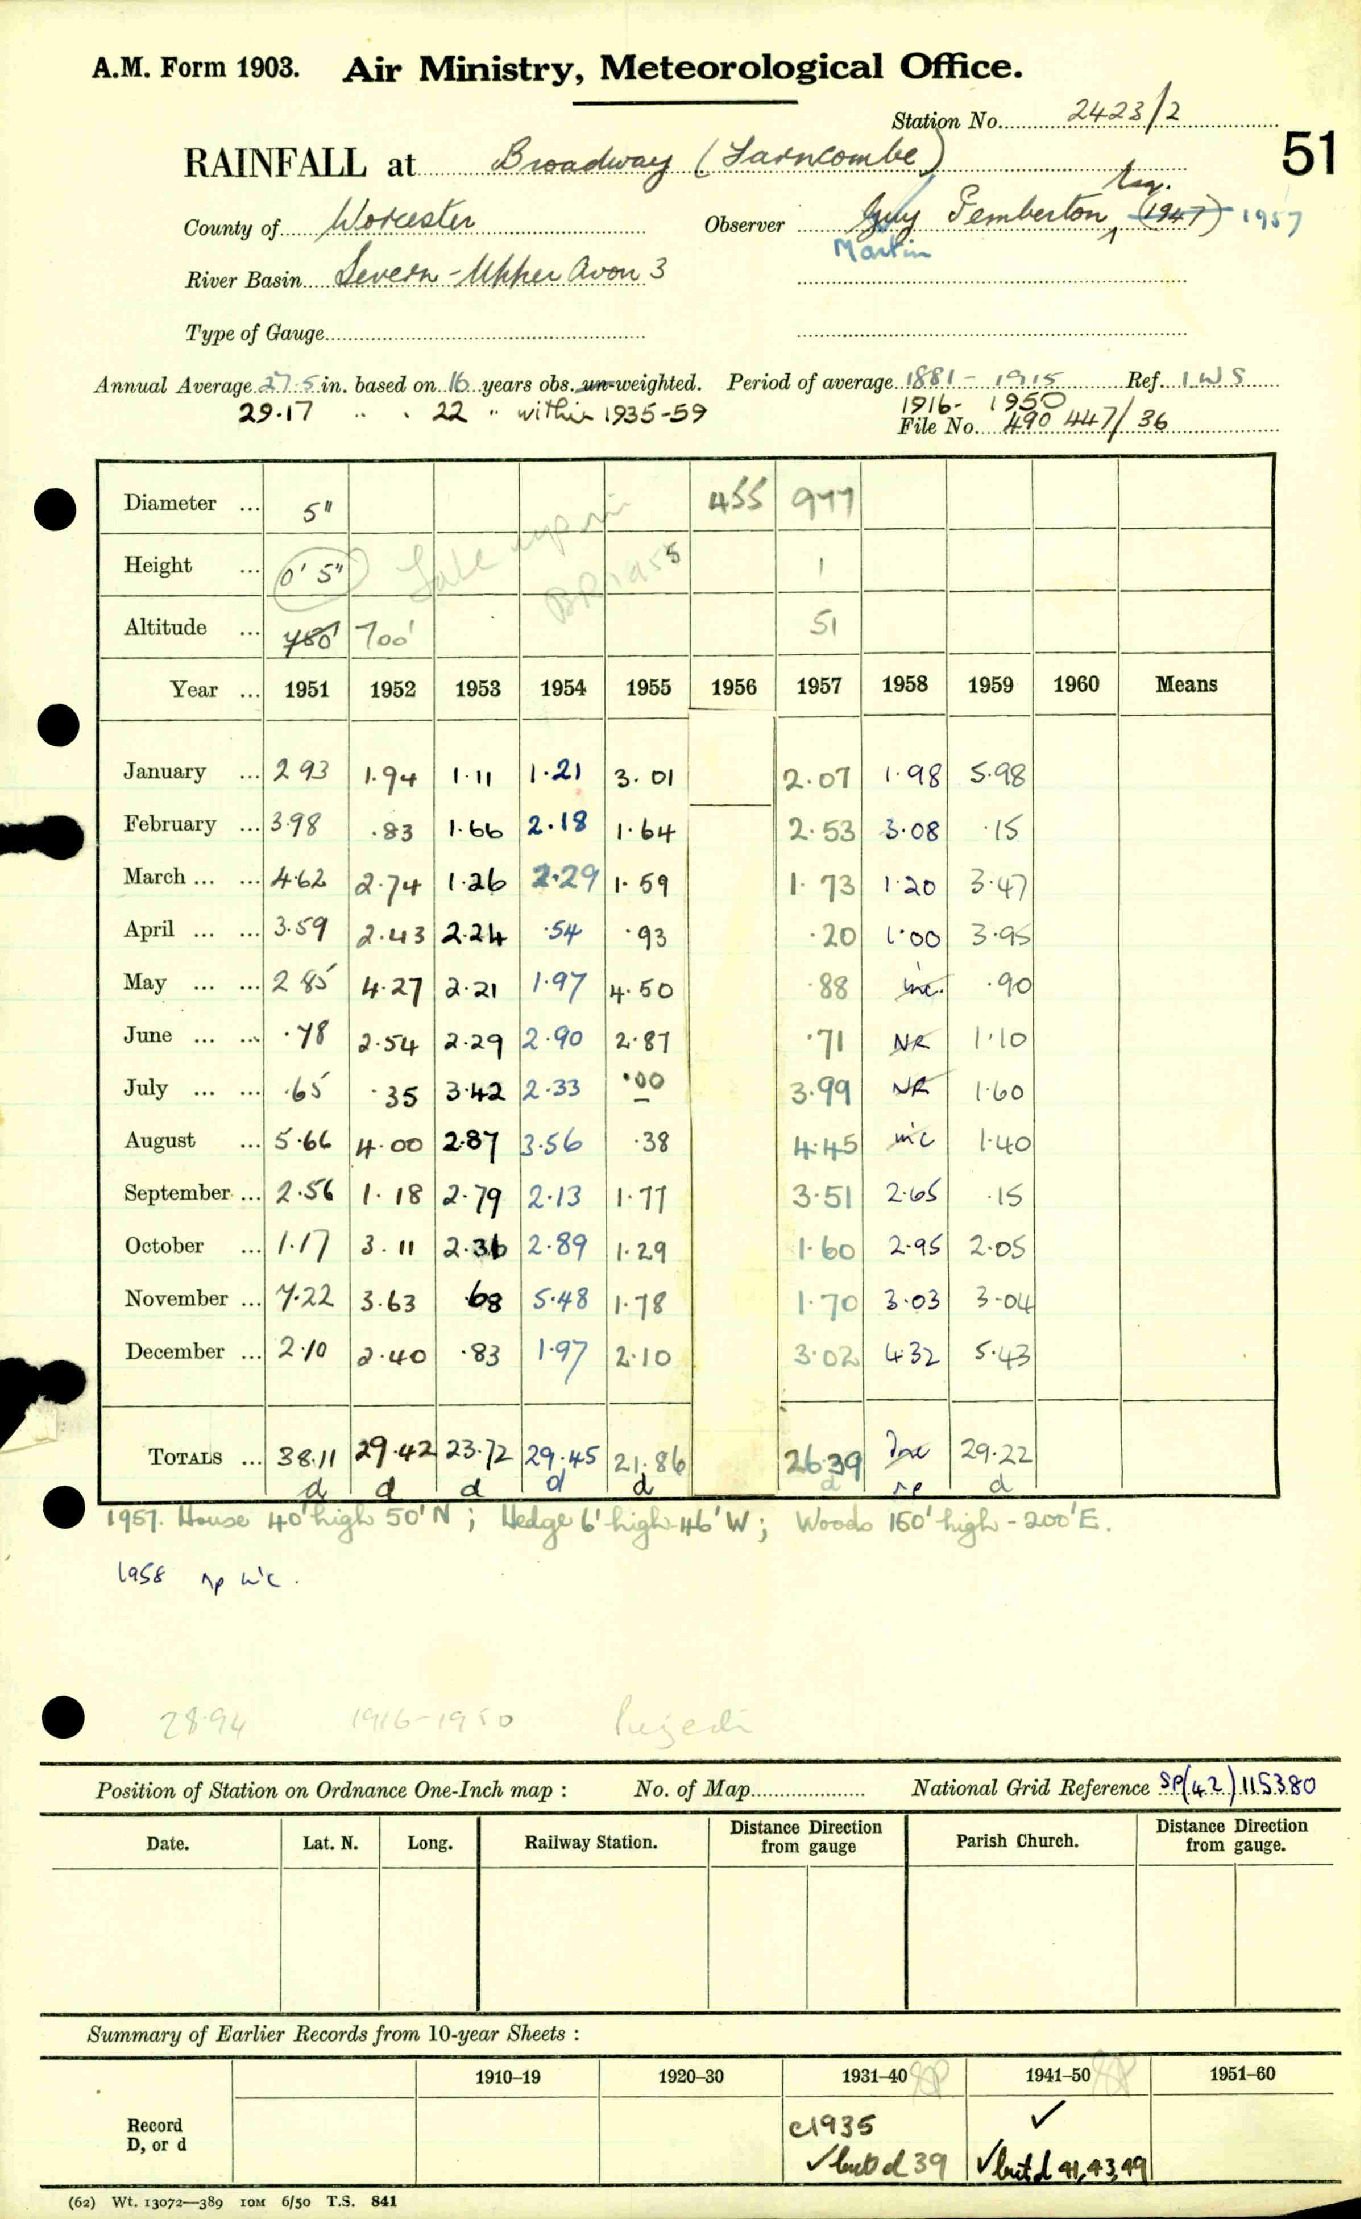 A.M. Form 1903. Air Ministry, Meteorological Office.
Station No. 2423/2
51
RAINFALL at Broadway (Farncombe)
County of Worcester Observer Guy Pemberton, Esq. (1947) 1957
Martin
River Basin Severn - Upper Avon 3
Type of Gauge
Annual Average 27.5 in. based on 16 years obs. un-weighted. Period of average 1881 - 1915 Ref. I W S
29.17 " " 22 " within 1935-59 1916- 1950
File No. 490 447/36
Diameter ... 5" 455 977
Height ... 0' 5" 1
Altitude ... 780' 700' 51
Year ... 1951 1952 1953 1954 1955 1956 1957 1958 1959 1960 Means
January ... 2 93 1.94 1.11 1.21 3.01 2.07 1.98 5.98
February ... 3.98 .83 1.66 2.18 1.64 2.53 3.08 .15
March ... ... 4.62 2.74 1.26 2.29 1.59 1.73 1.20 3.47
April ... ... 3.59 2.43 2.24 .54 .93 .20 1.00 3.95
May ... ... 2 85 4.27 2.21 1.97 4.50 .88 inc. .90
June ... ... .78 2.54 2.29 2.90 2.87 .71 NR 1.10
July ... ... .65 .35 3.42 2.33 .00 3.99 NR 1.60
August ... 5.66 4.00 2.87 3.56 .38 4.45 inc 1.40
September ... 2.56 1.18 2.79 2.13 1.77 3.51 2.65 .15
October ... 1.17 3.11 2.36 2.89 1.29 1.60 2.95 2.05
November ... 7.22 3.63 .68 5.48 1.78 1.70 3.03 3.04
December ... 2.10 2.40 .83 1.97 2.10 3.02 4.32 5.43
TOTALS ... 38.11 29.42 23.72 29.45 21.86 26.39 Inc 29.22
d d d d d d np d
1957. House 40' high 50' N ; Hedge 6' high - 46' W ; Woods 150' high - 200' E.
1958 np inc.
28.94 1916-1950
Position of Station on Ordnance One-Inch map : No. of Map National Grid Reference SP(42)115380
Date. Lat. N. Long. Railway Station. Distance Direction from gauge Parish Church. Distance Direction from gauge.
Summary of Earlier Records from 10-year Sheets :
1910–19 1920–30 1931–40 1941–50 1951–60
Record D, or d
c1935 ✓
✓ but d 39 ✓ but d 41, 43, 49
(62) Wt. 13072—389 10M 6/50 T.S. 841